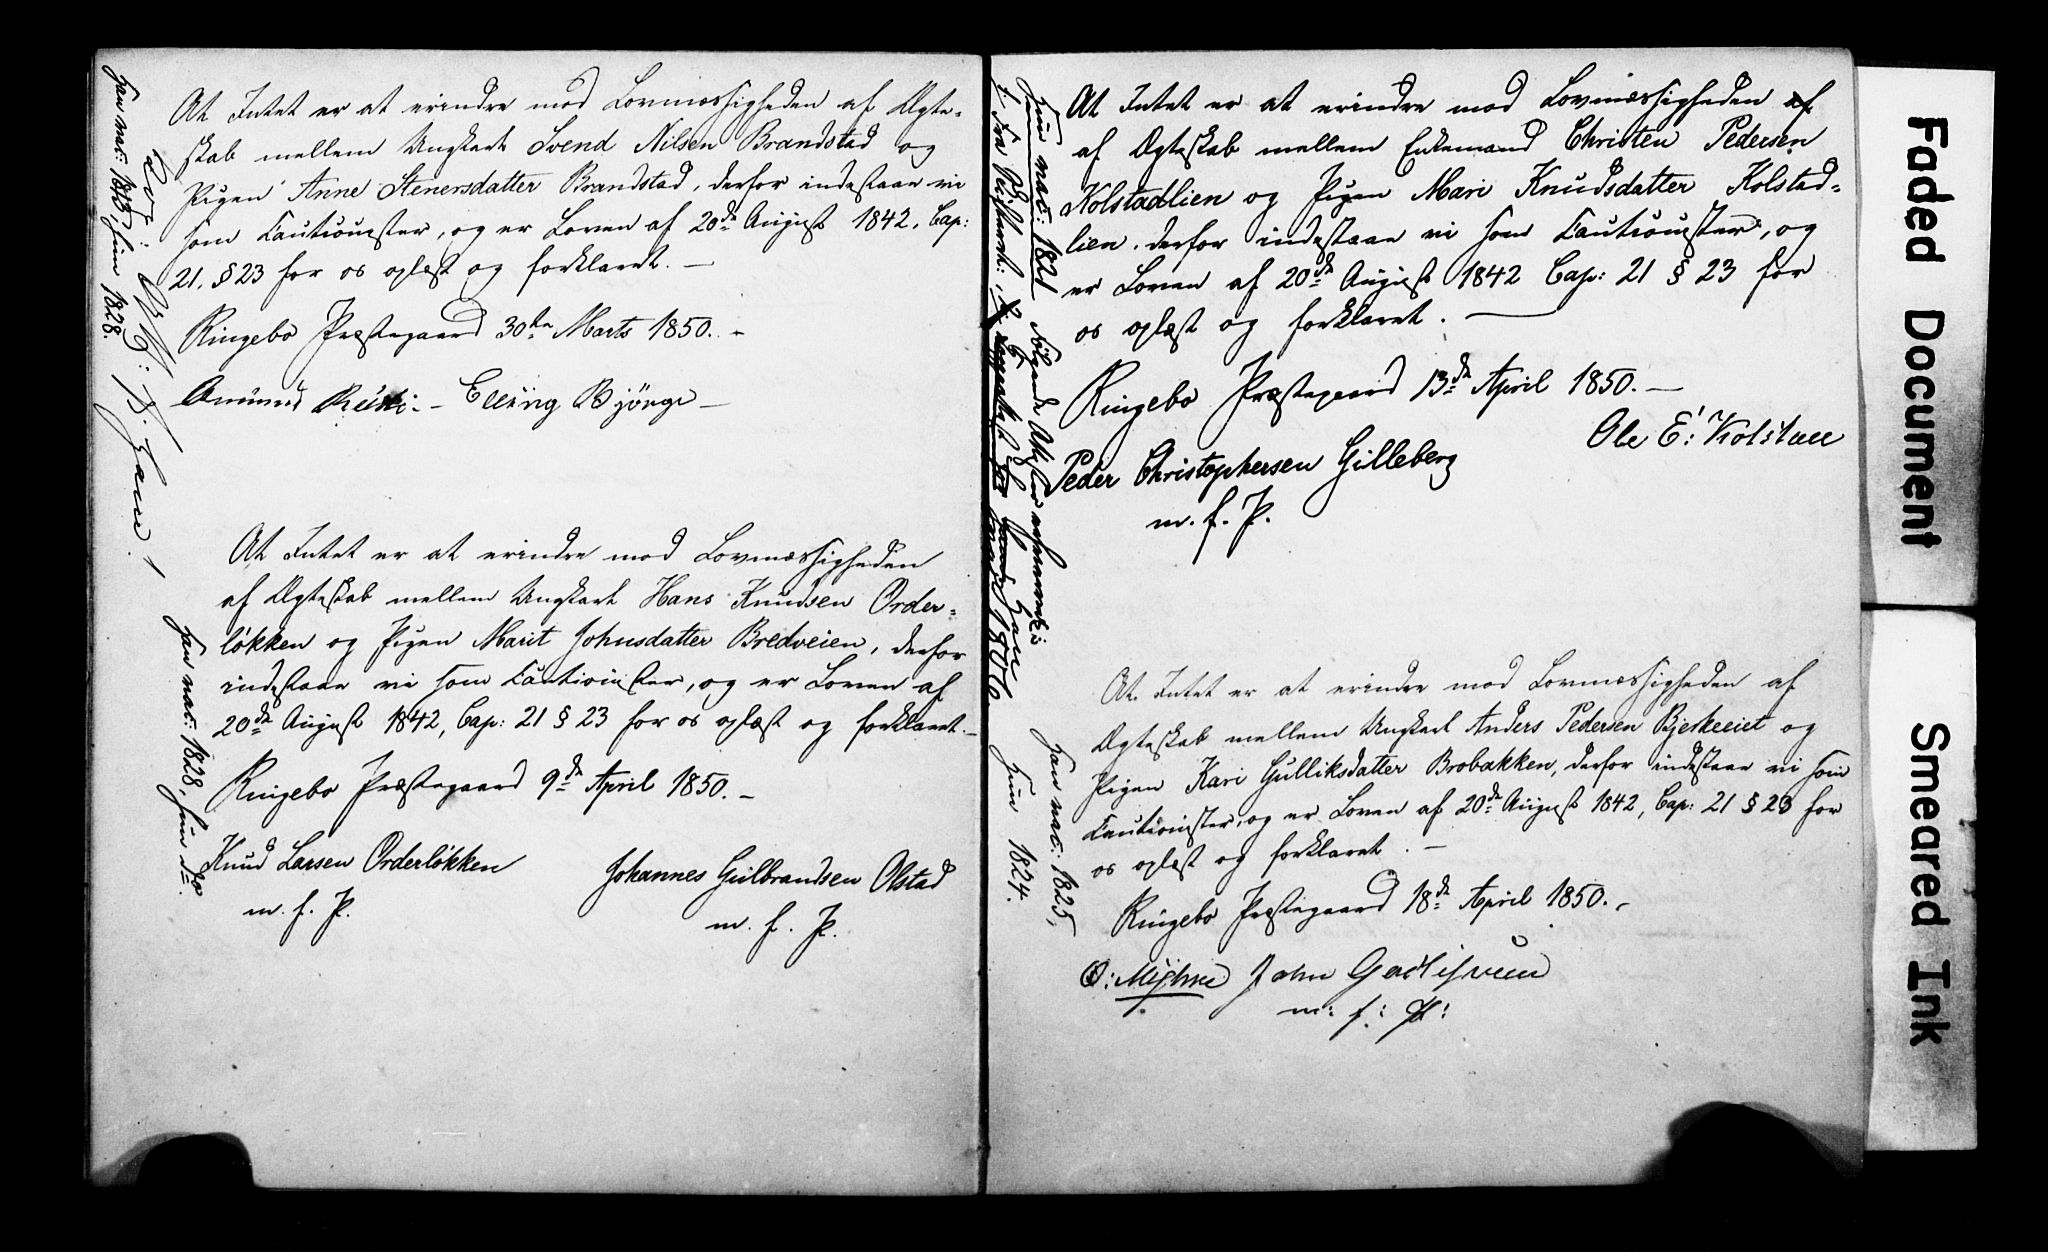 At Intet er at erindre mod Lovmæssigheden af Ægte-
skab mellem Ungkarl Svend Nilsen Brandstad og
Pigen Anne Stenersdatter Brandstad, derfor indestaae vi
som Cautionister, og er Loven af 20de August 1842, Cap:
21, § 23 for os oplæst og forklaret. —
Ringebo Præstegaard 30te Marts 1850. —
Amund Rusti. — Elling Bjørge —
han nat: hun 1828.
At Intet er at erindre mod Lovmæssigheden
af Ægteskab mellem Ungkarl Hans Knudsen Order-
løkken og Pigen Marit Johnsdatter Bredveien, derfor
indestaae vi som Cautionister, og er Loven af
20de August 1842, Cap: 21 § 23 for os oplæst og forklaret. —
Ringebo Præstegaard 9de April 1850. —
Knud Larsen Orderløkken
m. f. P.
Johannes Gulbrandsen Olstad
m. f. P.
han nat: 1828, hun do.
At Intet er at erindre mod Lovmæssigheden af
af Ægteskab mellem Enkemand Christen Pedersen
Kolstadlien og Pigen Mari Knudsdatter Kolstad-
lien, derfor indestaae vi som Cautionister, og
er Loven af 20de August 1842 Cap: 21 § 23 for
os oplæst og forklaret. —
Ringebo Præstegaard 13de April 1850. —
Ole E: Kolstad
Peder Christophersen Gilleberg
m. f. P.
hun nat: 1821
At Intet er at erindre mod Lovmæssigheden af
Ægteskab mellem Ungkarl Anders Pedersen Bjerkeeiet og
Pigen Kari Gulliksdatter Brobakken, derfor indestaae vi som
Cautionister, og er Loven af 20de August 1842, Cap: 21 § 23 for
os oplæst og forklaret. —
Ringebo Præstegaard 18de April 1850. —
O: Myhre John
m: f: P:
han nat: 1825,
hun 1824.
Faded Document
Smeared Ink